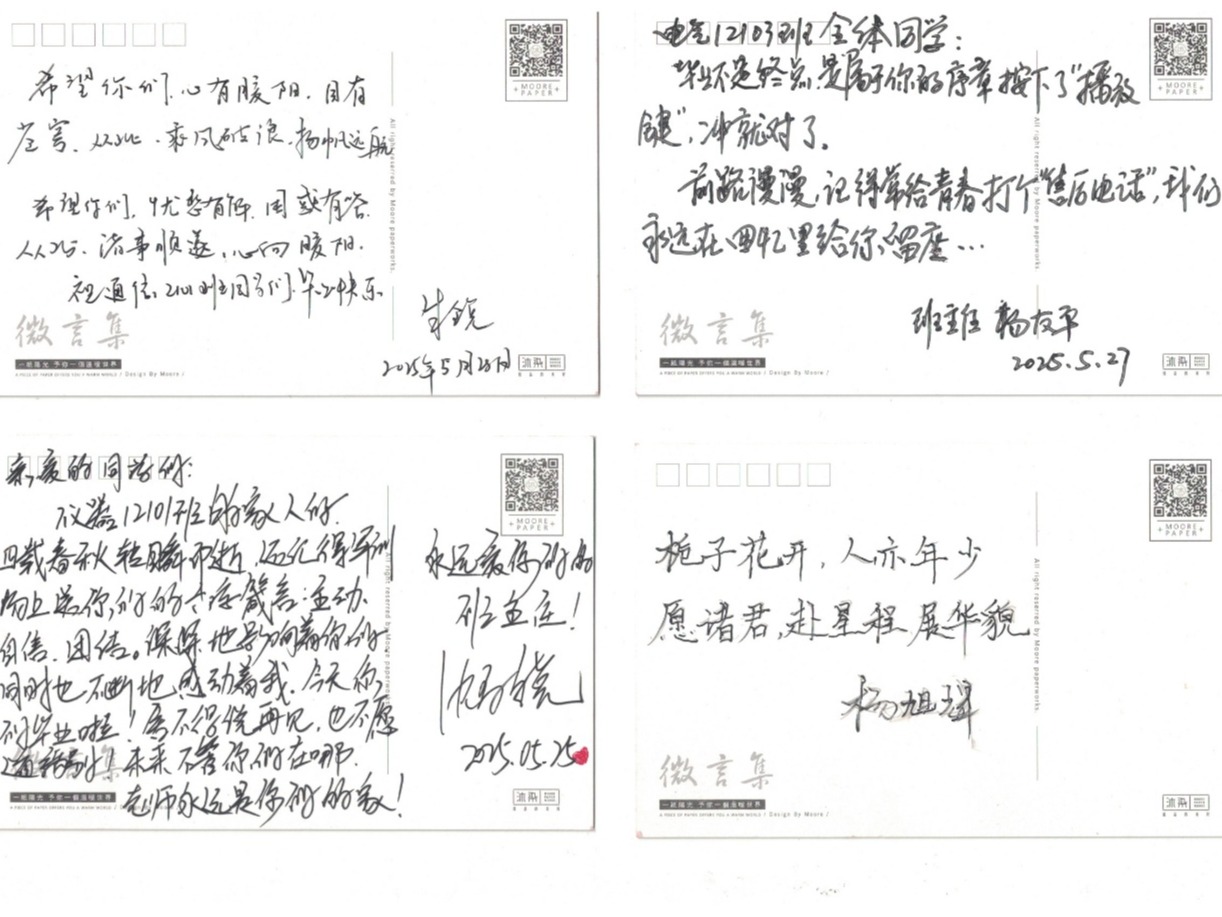 希望你们，心有暖阳，自有
芒寄，从此，乘风破浪，扬帆远航
希望你们，忧愁有解，困惑有答
从此，诸事顺遂，心向暖阳.
祝通信2101班同学们，毕业快乐
2025年5月26日
MOORE
PAPER
All right reserred by Moore paperworks.
微言集
一紙陽光 予你一個溫暖世界
A PIECE OF PAPER OFFERS YOU A WARM WORLD / Design By Moore /
电气12103班全体同学：
毕业不是终点，是属于你的序章按下了“播放
键”，冲就对了。
前路漫漫，记得常给青春打个“售后电话”，我们
永远在回忆里给你留座…
班主任 杨友平
2025.5.27
MOORE
PAPER
All right reserred by Moore paperworks.
微言集
一紙陽光 予你一個溫暖世界
A PIECE OF PAPER OFFERS YOU A WARM WORLD / Design By Moore /
亲爱的同学们：
仪器12101班的家人们.
四载春秋转瞬即逝，还记得军训
场上送你们的六字箴言：主动、
自信、团结。深深地影响着你们
同时也不断地感动着我. 今天你
们毕业啦！舍不得说再见，也不愿
道离别！未来不管你们在哪.
老师永远是你们的家！
永远爱你们的
班主任！
2025.05.25
MOORE
PAPER
All right reserred by Moore paperworks.
微言集
一紙陽光 予你一個溫暖世界
A PIECE OF PAPER OFFERS YOU A WARM WORLD / Design By Moore /
栀子花开，人亦年少
愿诸君，赴星程 展华貌
杨旭辉
MOORE
PAPER
All right reserred by Moore paperworks.
微言集
一紙陽光 予你一個溫暖世界
A PIECE OF PAPER OFFERS YOU A WARM WORLD / Design By Moore /